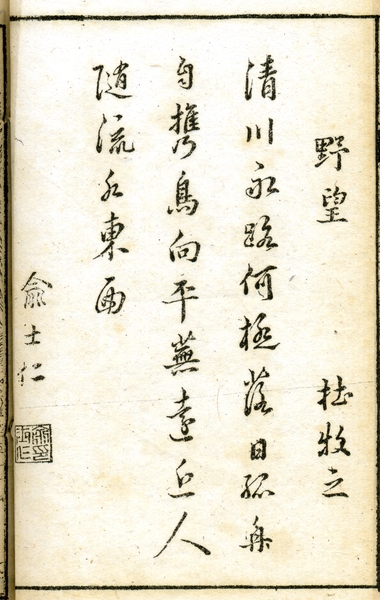 野望 杜牧之
清川永路何極落日孤舟
自携鳥向平蕪遠近人
隨流水東西
俞士仁